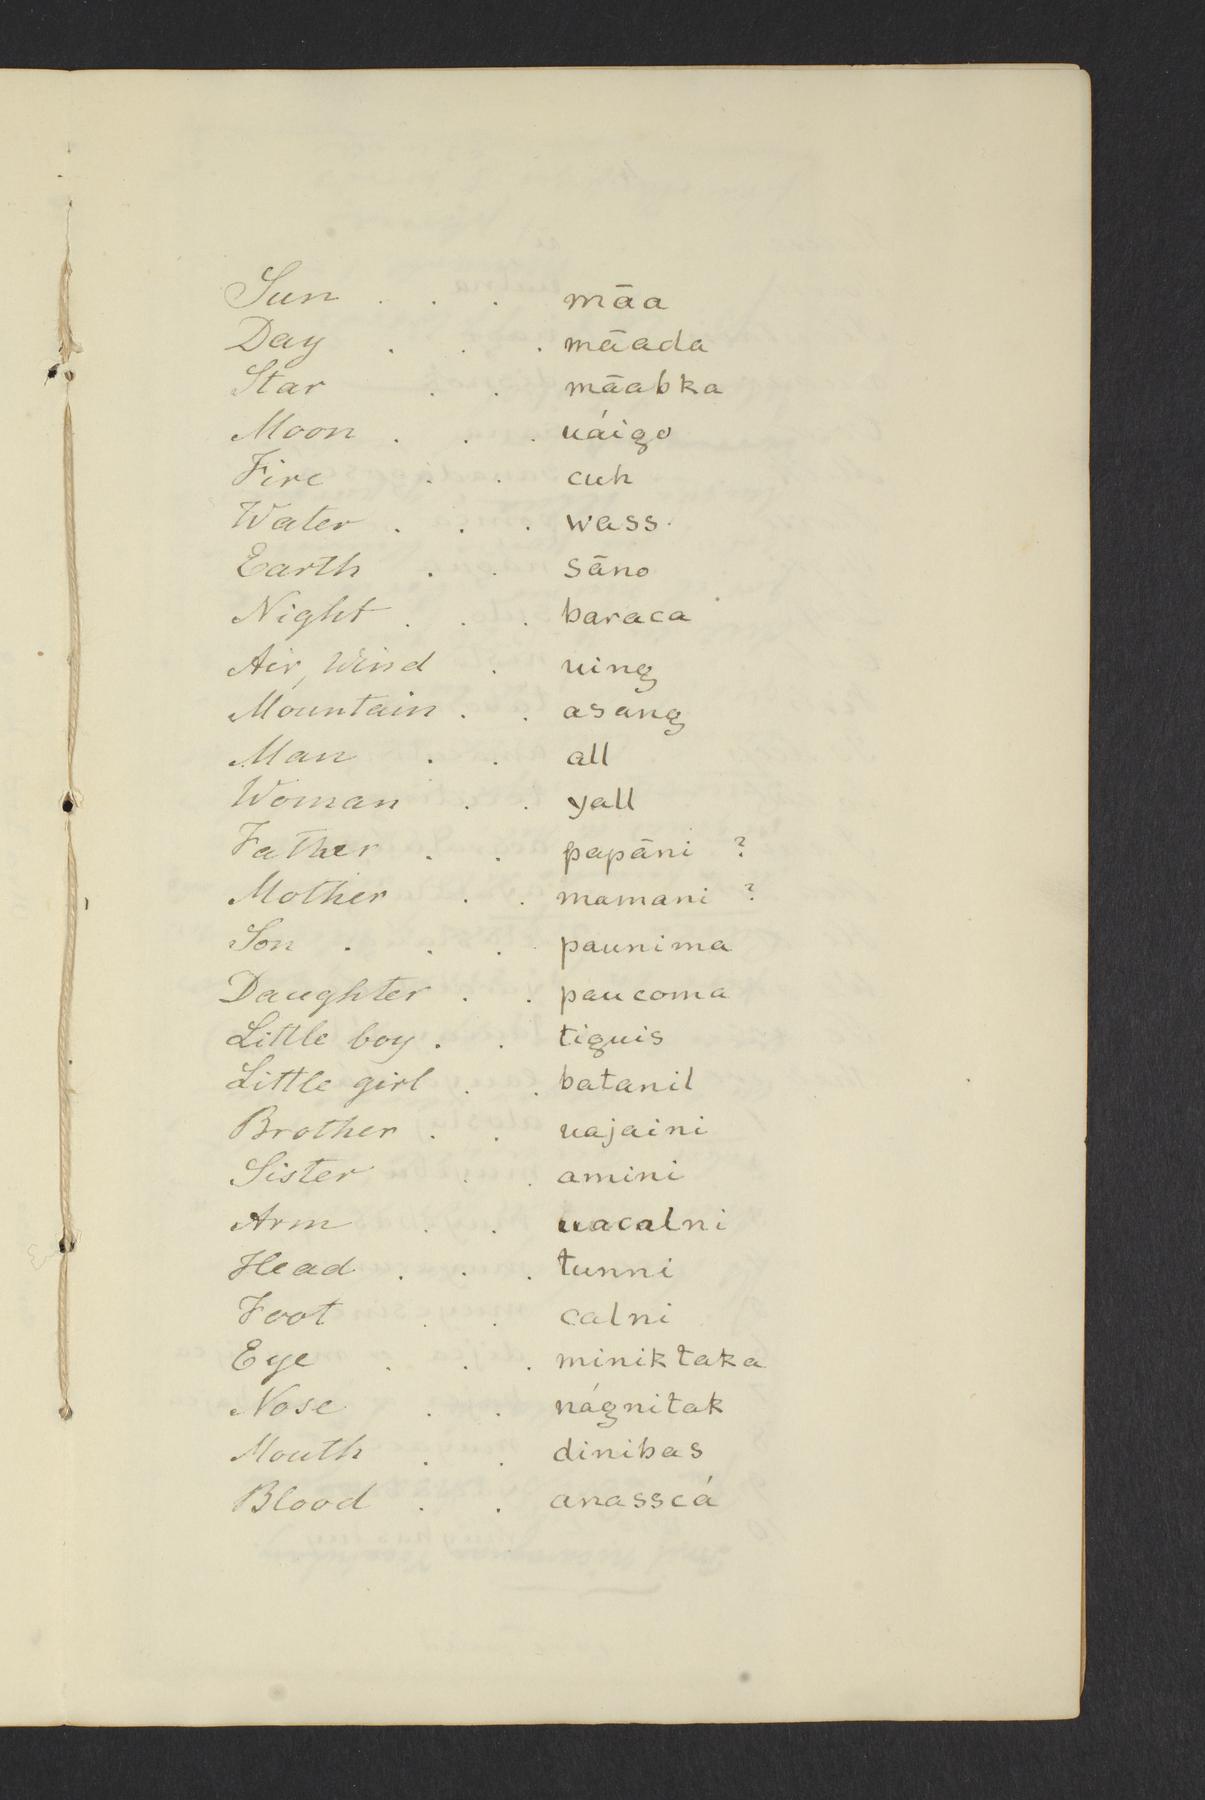 Sun . . . māa
Day . . . māada
Star . . māabka
Moon . . . uáigo
Fire . . cuh
Water . . . wass.
Earth . . sāno
Night . . . baraca
Air, Wind . uing
Mountain . . asang
Man . . all
Woman . . yall
Father . . papāni ?
Mother . . mamani ?
Son . . . paunima
Daughter . . paucoma
Little boy . . tiguis
Little girl . . batanil
Brother . . uajaini
Sister . . amini
Arm . . uacalni
Head . . . tunni
Foot . . calni
Eye . . . miniktaka
Nose . . nágnitak
Mouth . . dinibas
Blood . . anasscá